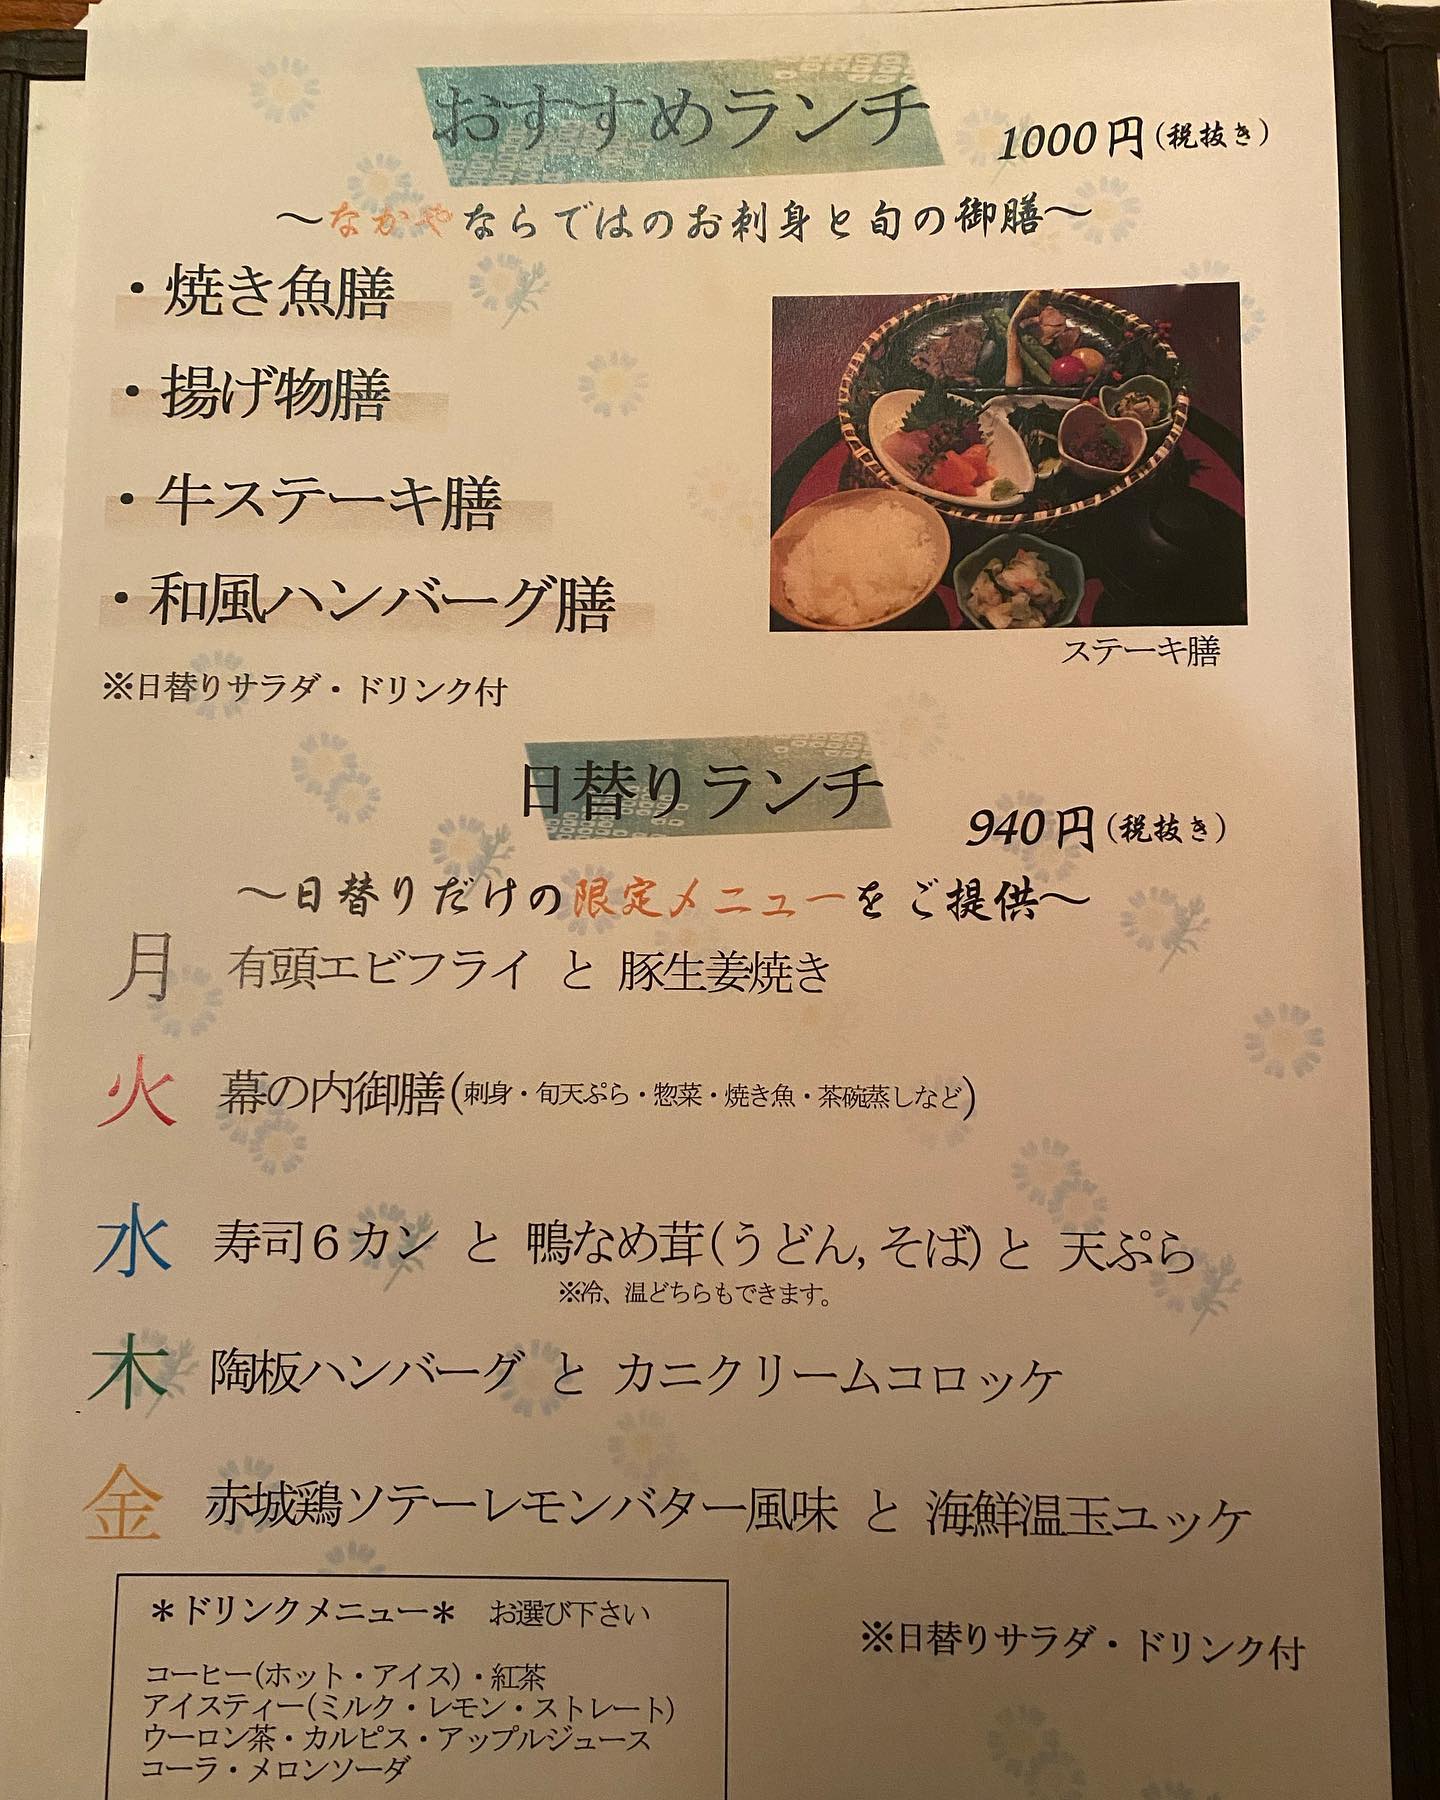 おすすめランチ 1000円(税抜き)
～なかやならではのお刺身と旬の御膳～
・焼き魚膳
・揚げ物膳
・牛ステーキ膳
・和風ハンバーグ膳
ステーキ膳
※日替りサラダ・ドリンク付
日替りランチ 940円(税抜き)
～日替りだけの限定メニューをご提供～
月 有頭エビフライ と 豚生姜焼き
火 幕の内御膳(刺身・旬天ぷら・惣菜・焼き魚・茶碗蒸しなど)
水 寿司6カン と 鴨なめ茸(うどん,そば)と 天ぷら
※冷、温どちらもできます。
木 陶板ハンバーグ と カニクリームコロッケ
金 赤城鶏ソテーレモンバター風味 と 海鮮温玉ユッケ
＊ドリンクメニュー＊ お選び下さい
コーヒー(ホット・アイス)・紅茶
アイスティー(ミルク・レモン・ストレート)
ウーロン茶・カルピス・アップルジュース
コーラ・メロンソーダ
※日替りサラダ・ドリンク付